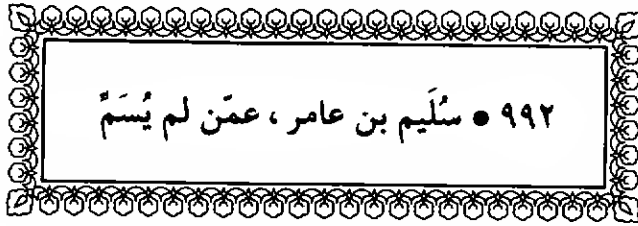 ٩٩٢ ● سُلَيم بن عامر ، عمّن لم يُسَمَّ